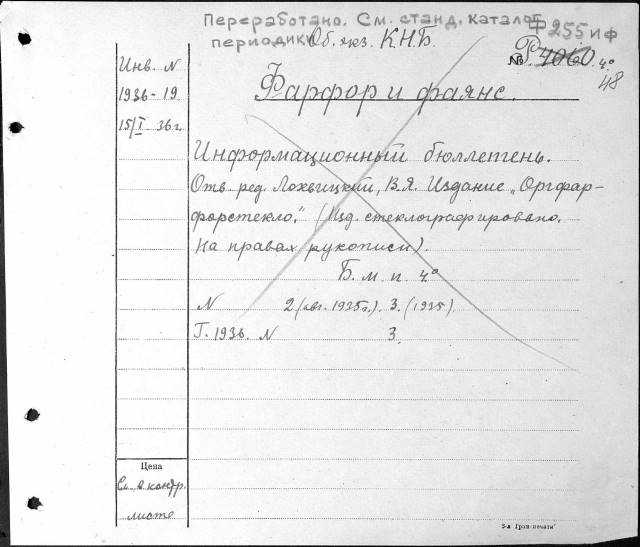 Переработано. См. станд. каталог
периодики Об. экз. К.Н.Б. Ф 255 иф
№ Р 4060 4°
48
Инв. N
1936-19
15/I 36 г.
Фарфор и фаянс.
Информационный бюллетень.
Отв. ред. Лохвицкий, В.Я. Издание „Оргфар-
форстекло." (Изд. стеклографировано.
На правах рукописи).
Б. м. п. 4°
N 2 (авг. 1935 г.). 3. (1935).
Г. 1936. N 3.
Цена
См. в контр.
листе
3-я Гроп-печати"